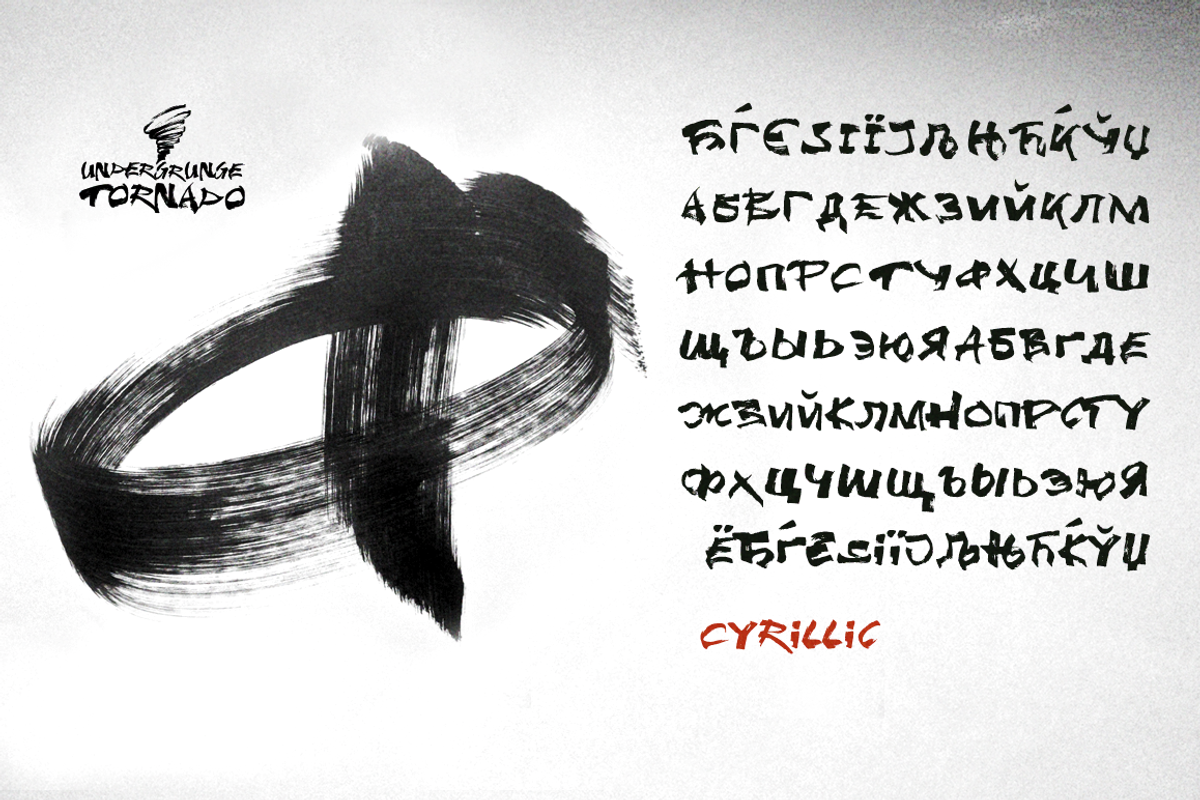 UNDERGRUNGE
TORNADO
ЂЃЄЅІЇЈЉЊЋЌЎЏ
АБВГДЕЖЗИЙКЛМ
НОПРСТУФХЦЧШ
ЩЪЫЬЭЮЯАБВГДЕ
ЖЗИЙКЛМНОПРСТУ
ФХЦЧШЩЪЫЬЭЮЯ
ЁЂЃЄЅІЇЈЉЊЋЌЎЏ
CYRiLLiC